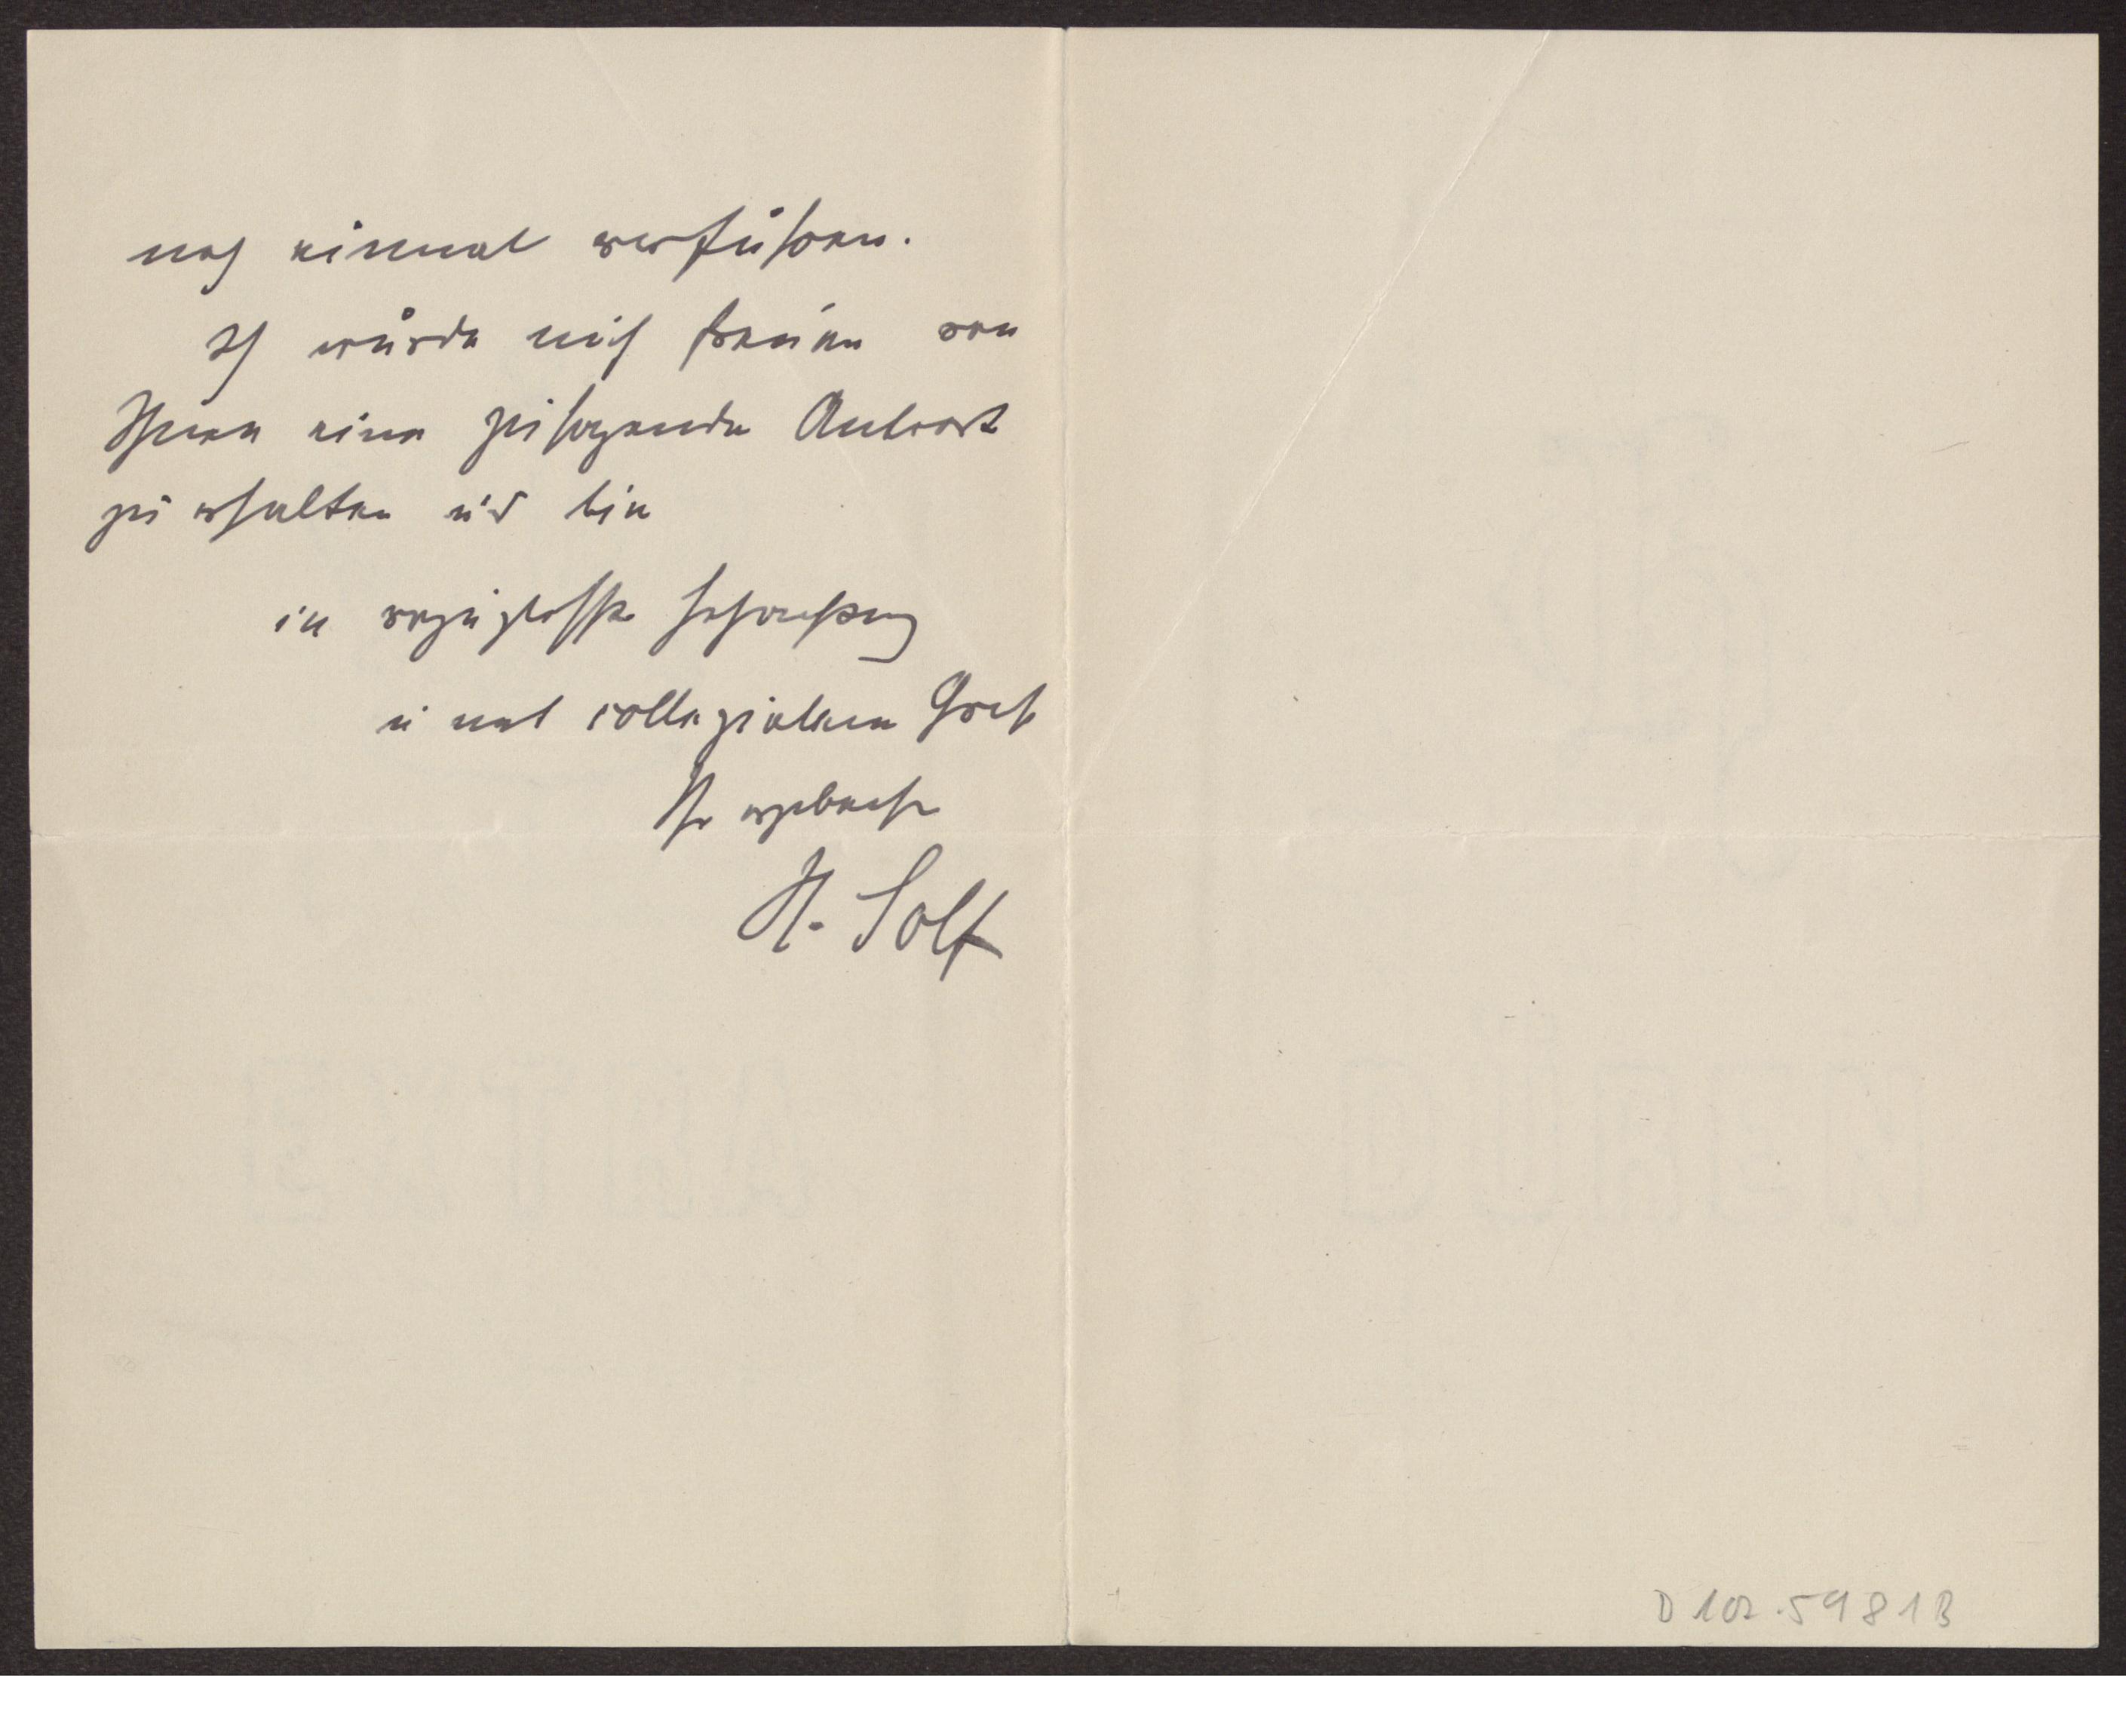 noch einmal vorführen.
Ich würde mich freuen von
Ihnen eine zusagende Antwort
zu erhalten und bin
in vorzüglichster Hochachtung
u mit collegialem Gruß
Ihr ergebenster
H. Solf
D 102.5981B